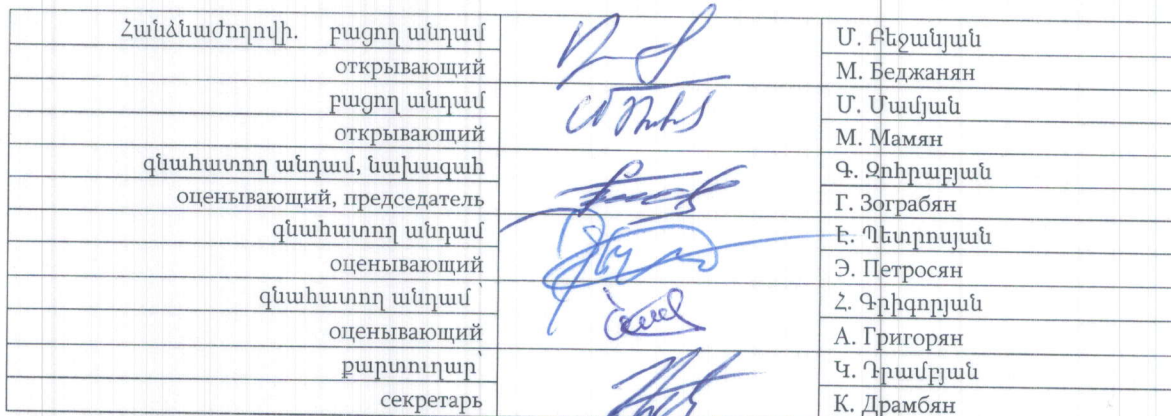 Հանձնաժողովի. բացող անդամ Մ. Բեջանյան
открывающий М. Беджанян
բացող անդամ Մ. Մամյան
открывающий М. Мамян
գնահատող անդամ, նախագահ Գ. Զոհրաբյան
оценывающий, председатель Г. Зограбян
գնահատող անդամ Է. Պետրոսյան
оценывающий Э. Петросян
գնահատող անդամ ՝ Հ. Գրիգորյան
оценывающий А. Григорян
քարտուղար՝ Կ. Դրամբյան
секретарь К. Драмбян